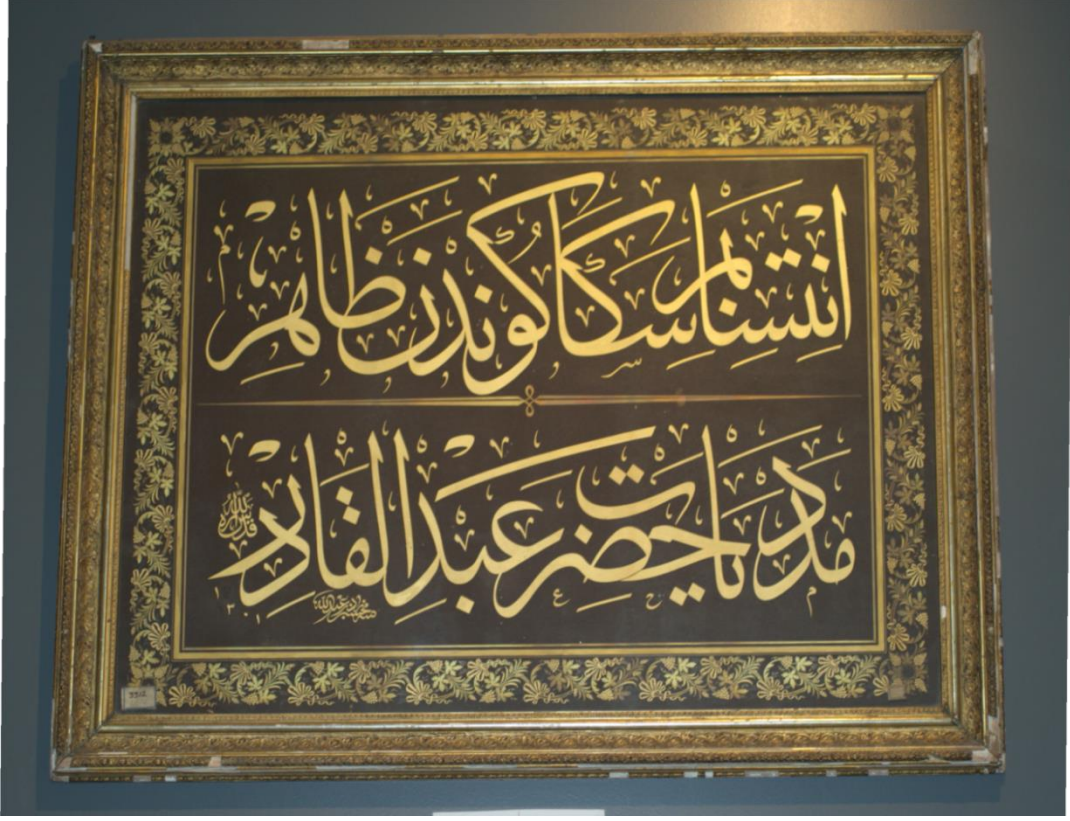 انتسابم سكا كوندن ظاهر
مدد يا حضرت عبد القادر
قدس الله سره
3312